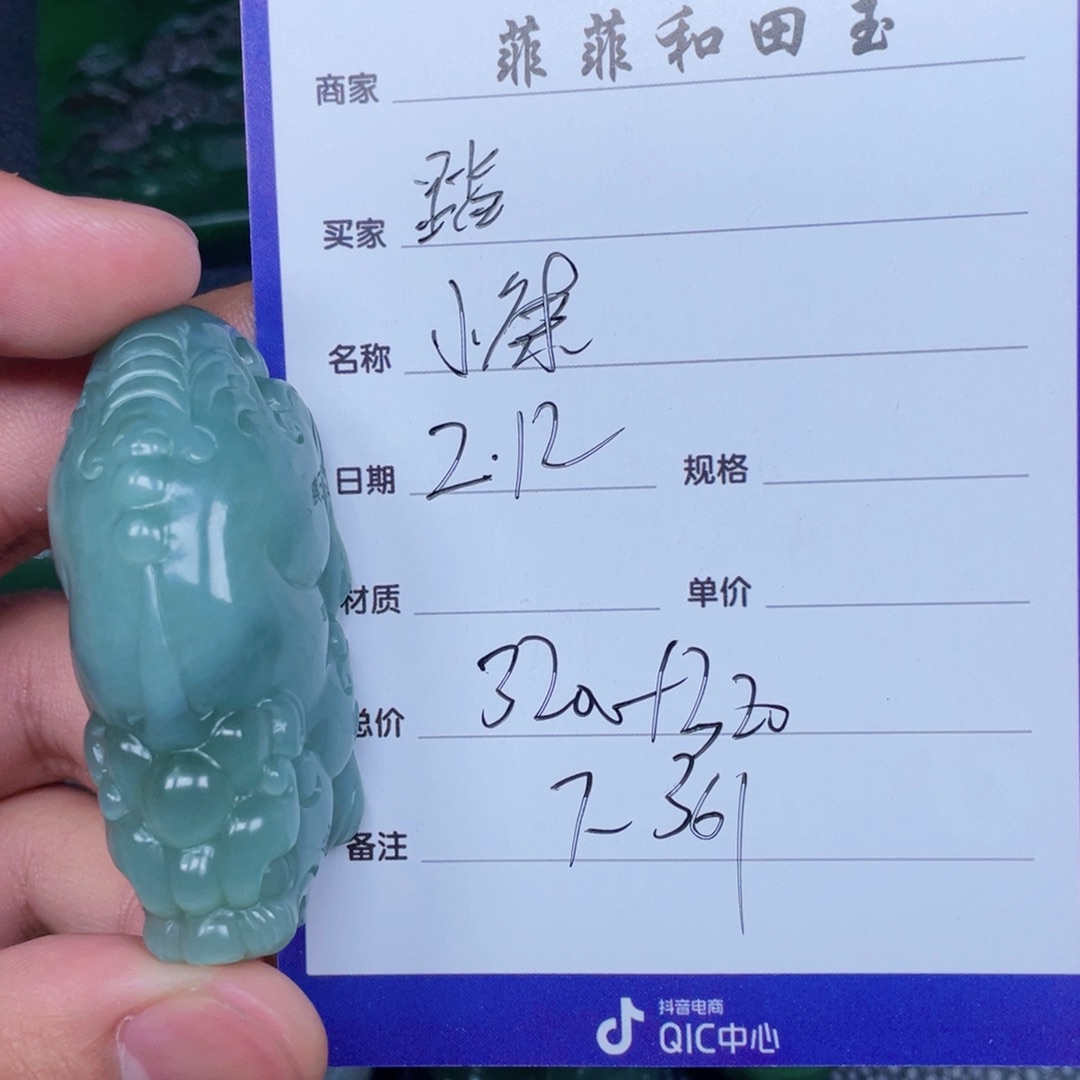 商家 菲菲和田玉
买家
名称 小
日期 2.12 规格
材质 单价
总价
7-361
备注
抖音电商
QIC中心